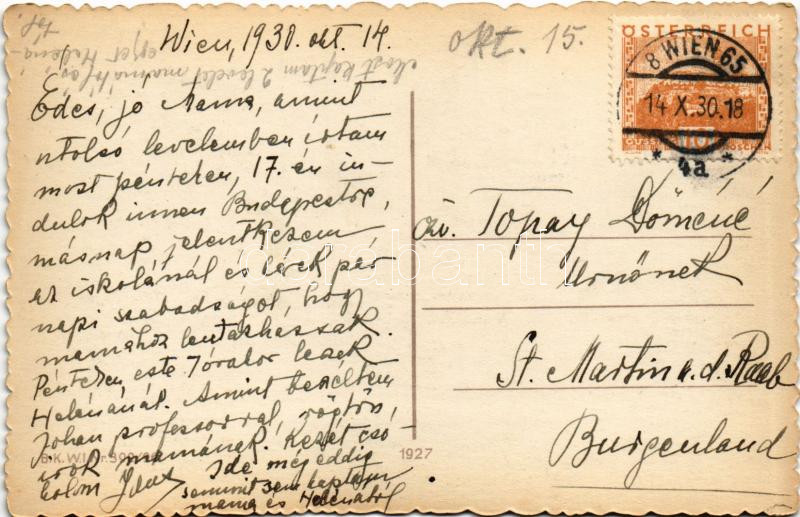 Wien, 1930. okt. 14.
okt. 15.
most kaptam 2 levelet mamától és
Édes, jó Mama, amint
utolsó levelemben írtam
most pénteken, 17.-én in-
dulok innen Budapestre,
másnap jelentkezem
az iskolánál és kérek pár
napi szabadságot, hogy
mamához leutazhassak.
Pénteken este 7 órakor leszek
Helénánál. Amint beszéltem
Johan professorral, rögtön
írok mamának. Kezét csó-
kolom
Ide még eddig
semmit sem kaptam
mama és Helenától
ÖSTERREICH
8 WIEN 65
14 X. 30. 18
* 4a *
GÜSSING
özv. Topay Dömöné
Urnőnek
St. Martin a. d. Raab
Burgenland
B.K.W.I.
1927
darabanth